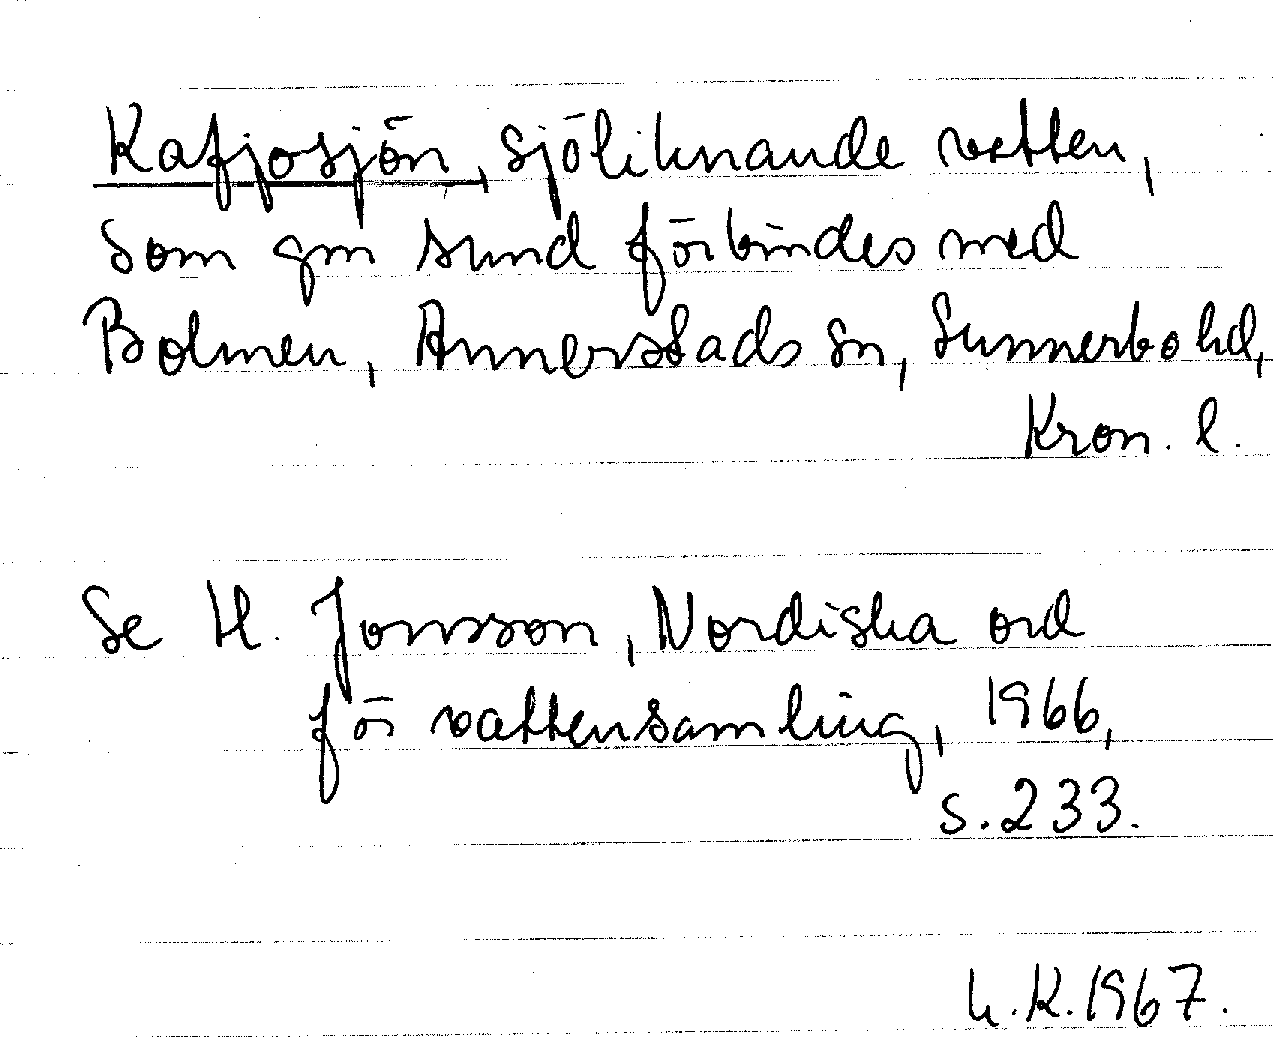 Kafjosjön, sjöliknande vatten,
som gm sund förbindes med
Bolmen, Annerstads sn, Sunnerbo hd,
Kron. l.
Se H. Jonsson, Nordiska ord
för vattensamling, 1966,
s. 233.
h.K. 1967.